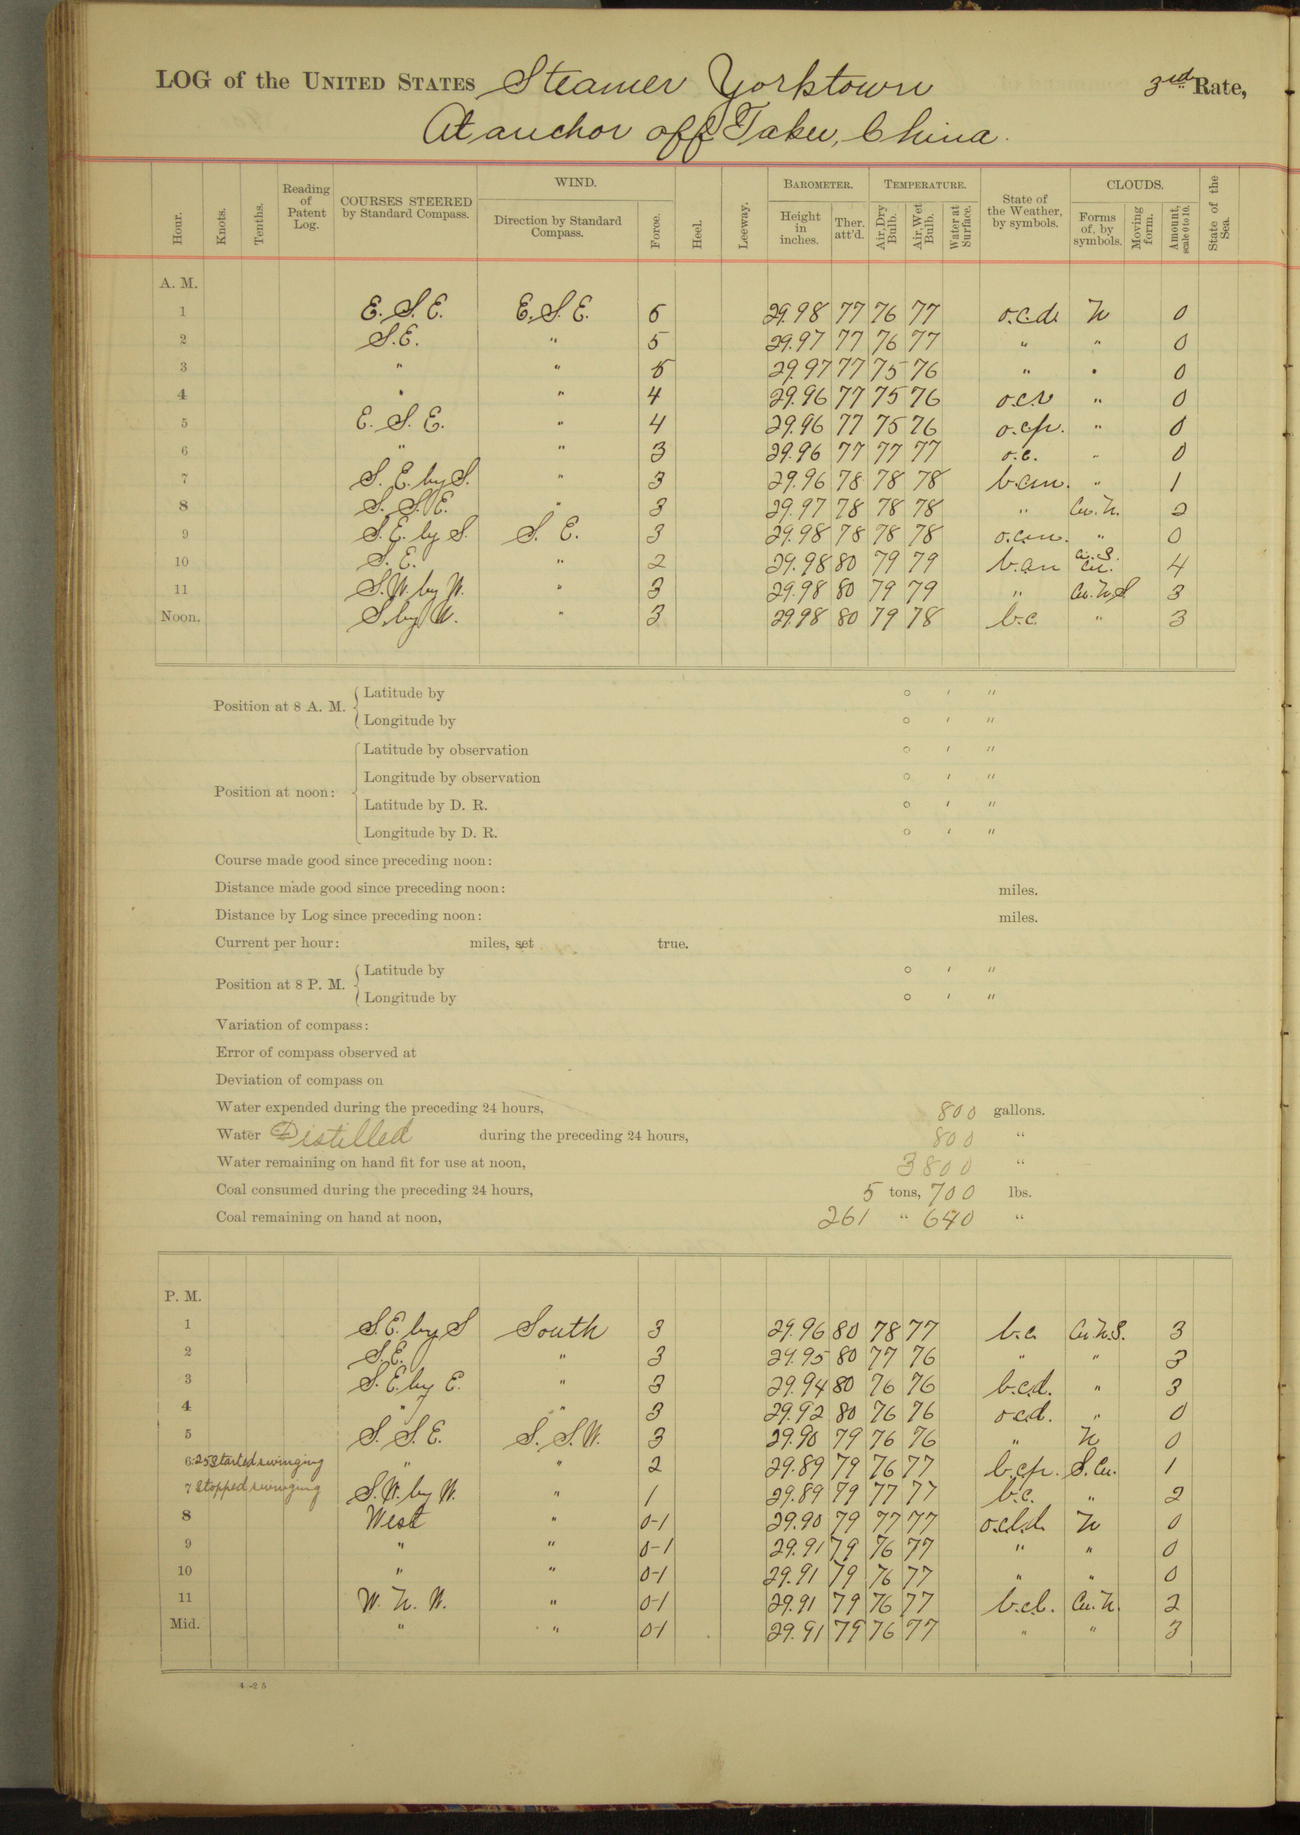 LOG of the UNITED STATES Steamer Yorktown 3rd Rate,
At anchor off Taku, China.
Hour. Knots. Tenths. Reading of Patent Log. COURSES STEERED by Standard Compass. WIND. Direction by Standard Compass. Force. Heel. Leeway. BAROMETER. Height in inches. Ther. att'd. TEMPERATURE. Air, Dry Bulb. Air, Wet Bulb. Water at Surface. State of the Weather, by symbols. CLOUDS. Forms of, by symbols. Moving form. Amount, scale 0 to 10. State of the Sea.
A. M.
1 E. S. E. E. S. E. 5 29.98 77 76 77 o.c.d. N 0
2 S. E. " 5 29.97 77 76 77 " " 0
3 " " 5 29.97 77 75 76 " " 0
4 " " 4 29.96 77 75 76 o.c.r " 0
5 E. S. E. " 4 29.96 77 75 76 o.c.p. " 0
6 " " 3 29.96 77 77 77 o.c. " 0
7 S. E. by S. " 3 29.96 78 78 78 b.c.m. " 1
8 S. S. E. " 3 29.97 78 78 78 " Cu. N. 2
9 S. E. by S. S. E. 3 29.98 78 78 78 o.c.m. " 0
10 S. E. " 2 29.98 80 79 79 4
11 S. W. by W. " 3 29.98 80 79 79 " Cu. N. S 3
Noon. S. by W. " 3 29.98 80 79 78 b.c. " 3
Position at 8 A. M. Latitude by ° ′ ″
Longitude by ° ′ ″
Latitude by observation ° ′ ″
Longitude by observation ° ′ ″
Position at noon:
Latitude by D. R. ° ′ ″
Longitude by D. R. ° ′ ″
Course made good since preceding noon:
Distance made good since preceding noon: miles.
Distance by Log since preceding noon: miles.
Current per hour: miles, set true.
Position at 8 P. M. Latitude by ° ′ ″
Longitude by ° ′ ″
Variation of compass:
Error of compass observed at
Deviation of compass on
Water expended during the preceding 24 hours, 800 gallons.
Water Distilled during the preceding 24 hours, 800 "
Water remaining on hand fit for use at noon, 3800 "
Coal consumed during the preceding 24 hours, 5 tons, 700 lbs.
Coal remaining on hand at noon, 261 " 640 "
P. M.
1 S. E. by S South 3 29.96 80 78 77 b.c. Cu. N. S. 3
2 S. E. " 3 29.95 80 77 76 " " 3
3 S. E. by E. " 3 29.94 80 76 76 b.c.d. " 3
4 " " 3 29.92 80 76 76 o.c.d. " 0
5 S. S. E. S. S. W. 3 29.90 79 76 76 " N 0
6:25 Started swinging " " 2 29.89 79 76 77 b.c.p. S. Cu. 1
7 Stopped swinging S. W. by W. " 1 29.89 79 77 77 b.c. " 2
8 West " 0-1 29.90 79 77 77 N 0
9 " " 0-1 29.91 79 76 77 " " 0
10 " " 0-1 29.91 79 76 77 " " 0
11 W. N. W. " 0-1 29.91 79 76 77 b.c.l. Cu. N. 2
Mid. " " 0-1 29.91 79 76 77 " " 3
4-25